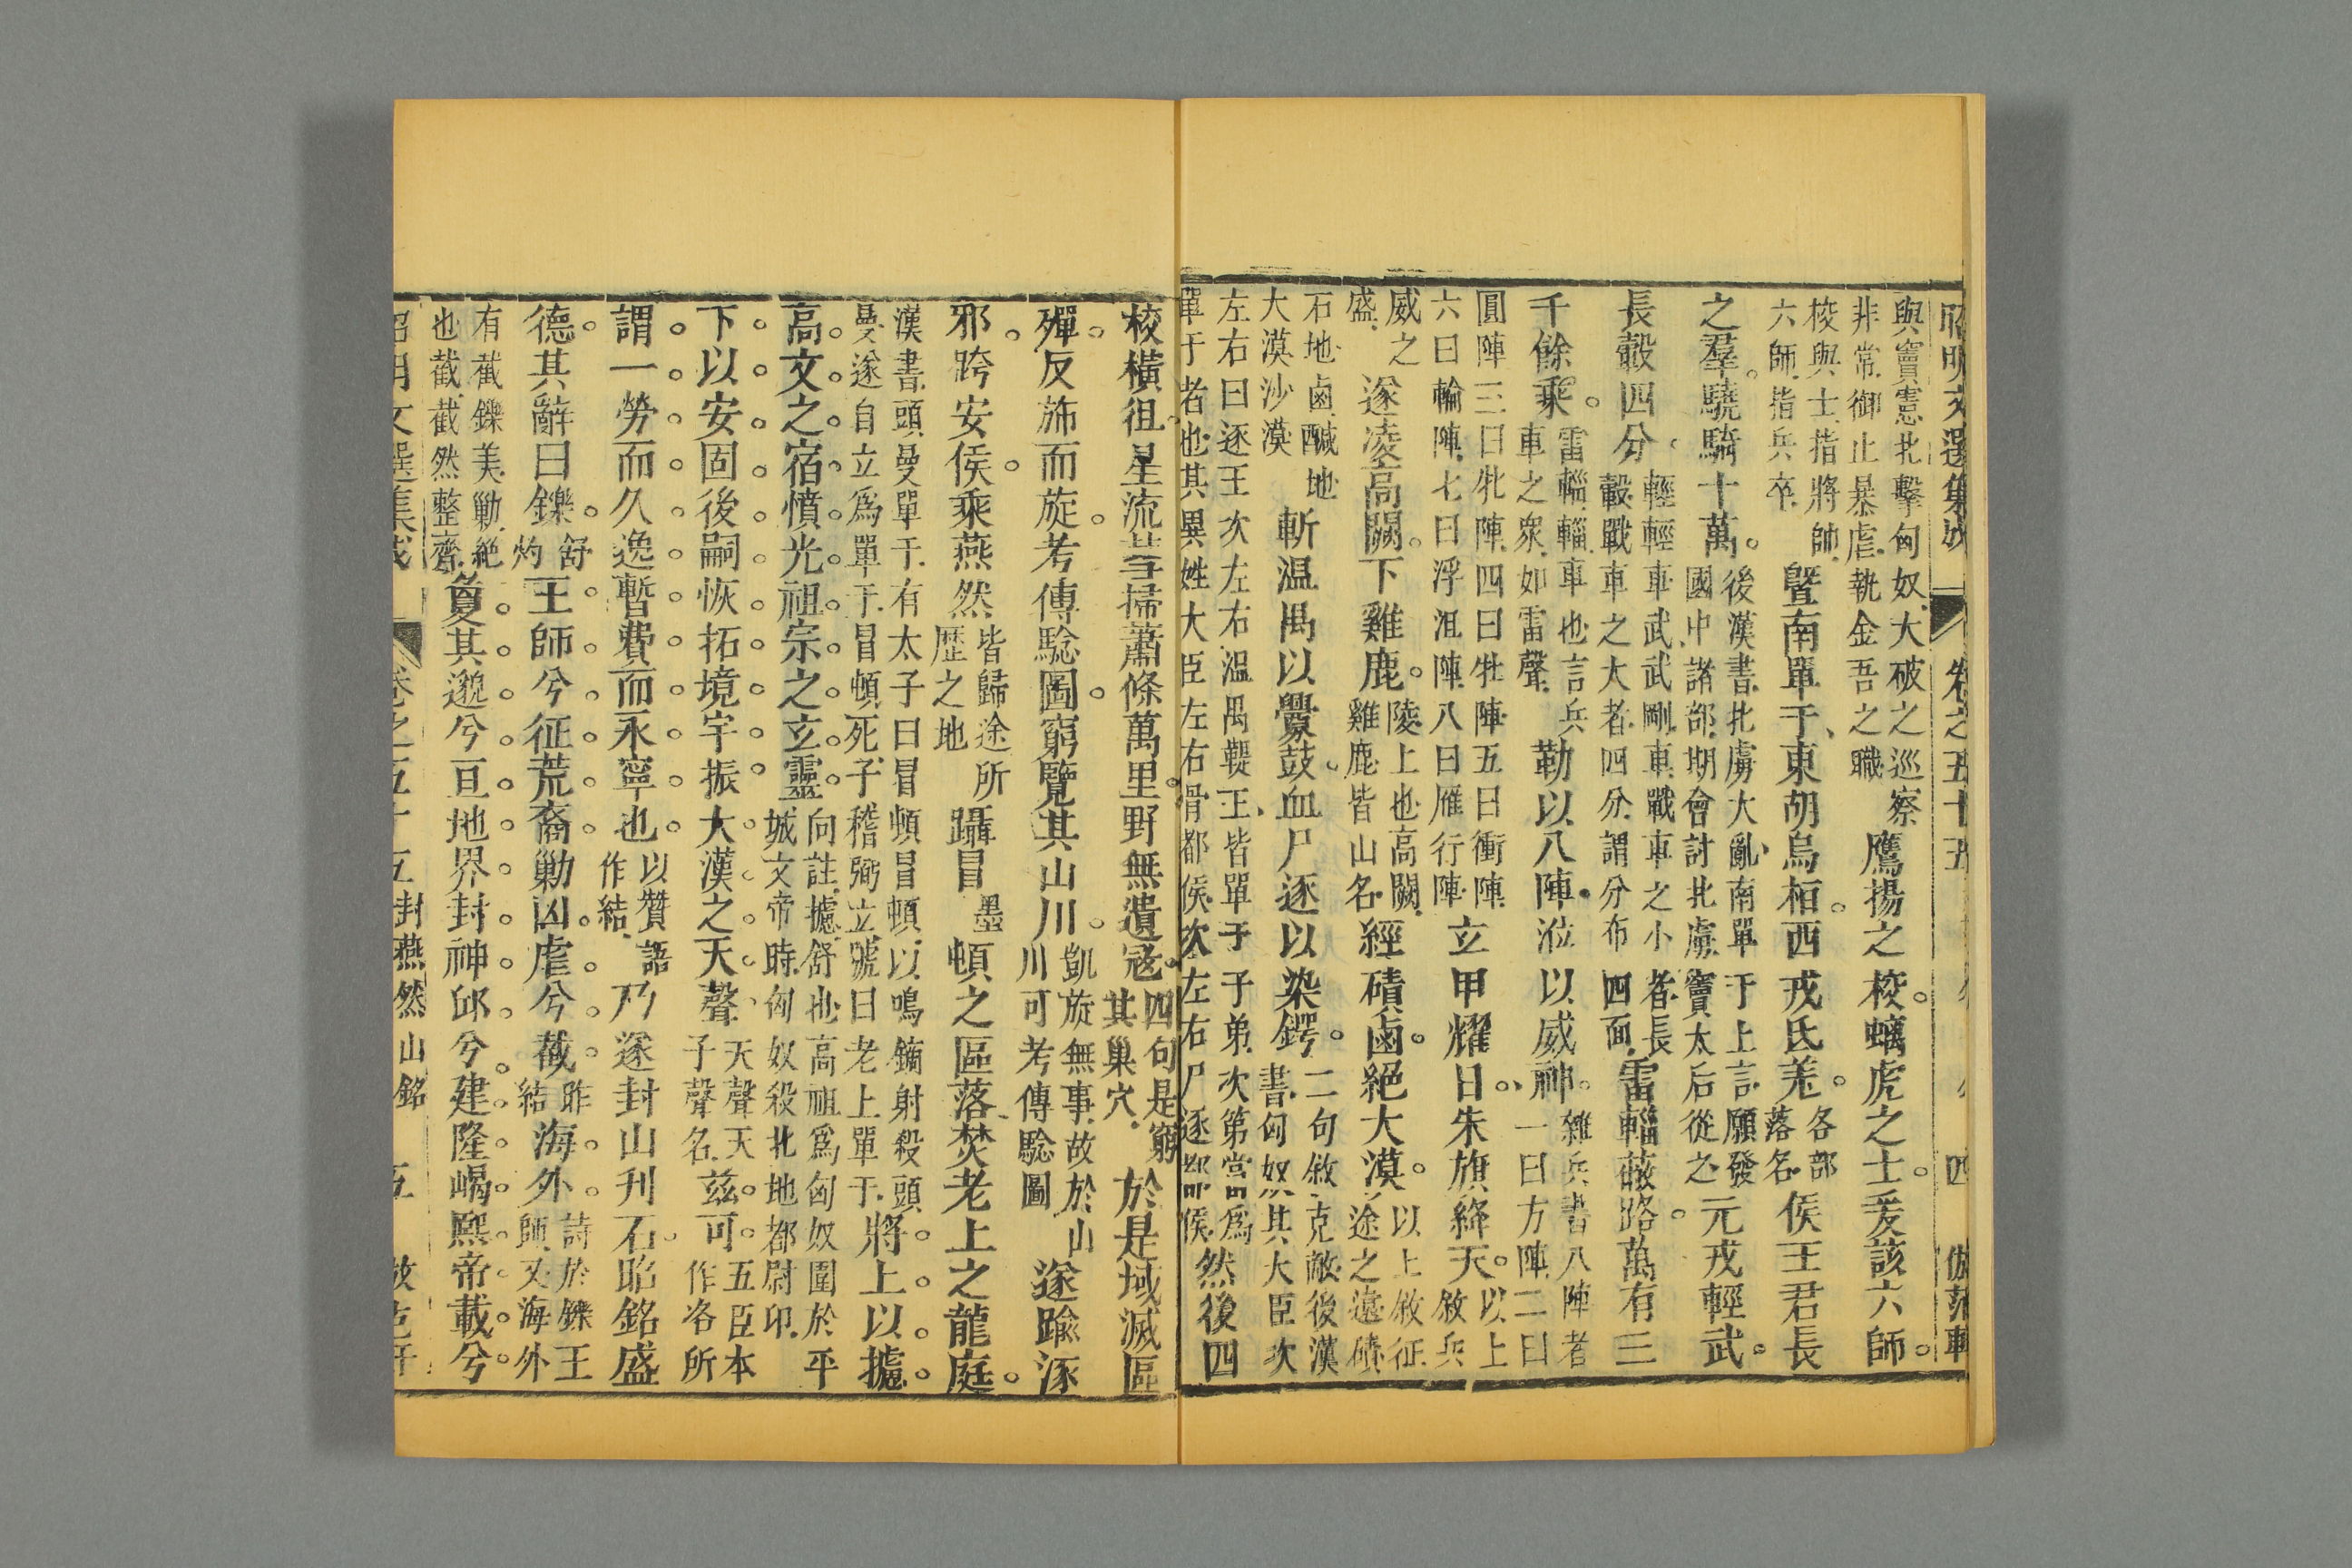 昭明文選集成 卷之五十五 四 倣范軒
與竇憲北擊匈奴大破之巡察
非常御止暴虐執金吾之職
鷹揚之校螭虎之士爰該六師
校與士指將帥
六師指兵卒
曁南單于東胡烏桓西戎氐羌
各部
落名
侯王君長
之羣驍騎十萬
後漢書北虜大亂南單于上言願發
國中諸部期會討北虜竇太后從之
元戎輕武
長轂四分
輕輕車武武剛車戰車之小者長
轂戰車之大者四分謂分布四面
雷輜蔽路萬有三
千餘乘
雷輜輜車也言兵
車之衆如雷聲
勒以八陣涖以威神
雜兵書八陣者
一曰方陣二曰
圓陣三曰牝陣四曰牡陣五曰衝陣
六曰輪陣七曰浮沮陣八曰雁行陣
立甲耀日朱旗絳天
以上
敘兵
威之
盛
遂凌高闕下雞鹿
陵上也高闕
雞鹿皆山名
經磧鹵絕大漠
以上敘征
途之遠磧
石地鹵鹹地
大漠沙漠
斬温禺以釁鼓血尸逐以染鍔
二句敘克敵後漢
書匈奴其大臣次
左右曰逐王次左右温禺鞮王皆單于子弟次第當爲
單于者也其異姓大臣左右骨都侯次左右尸逐都侯
然後四
校橫徂星流彗掃蕭條萬里野無遺寇
四句是窮
其巢穴
於是域滅區
殫反斾而旋考傳騐圖窮覽其山川
凱旋無事故於山
川可考傳騐圖
遂踰涿
邪跨安侯乘燕然
皆歸途所
歷之地
躡冒
墨
頓之區落焚老上之龍庭
漢書頭曼單于有太子曰冒頓冒頓以鳴鏑射殺頭
曼遂自立爲單于冒頓死子稽粥立號曰老上單于
將上以攄
高文之宿憤光祖宗之玄靈
向註攄舒也高祖爲匈奴圍於平
城文帝時匈奴殺北地都尉卬
下以安固後嗣恢拓境宇振大漢之天聲
天聲天
子聲名
茲可
五臣本
作咨所
謂一勞而久逸暫費而永寧也
以贊語
作結
乃遂封山刋石昭銘盛
德其辭曰鑠
舒
灼
王師兮征荒裔勦凶虐兮截
昨
結
海外
詩於鑠王
師又海外
有截鑠美勦絕
也截截然整齊
夐其邈兮亘地界封神邱兮建隆嵑熙帝載兮
昭明文選集成 卷之五十五 封燕然山銘 五